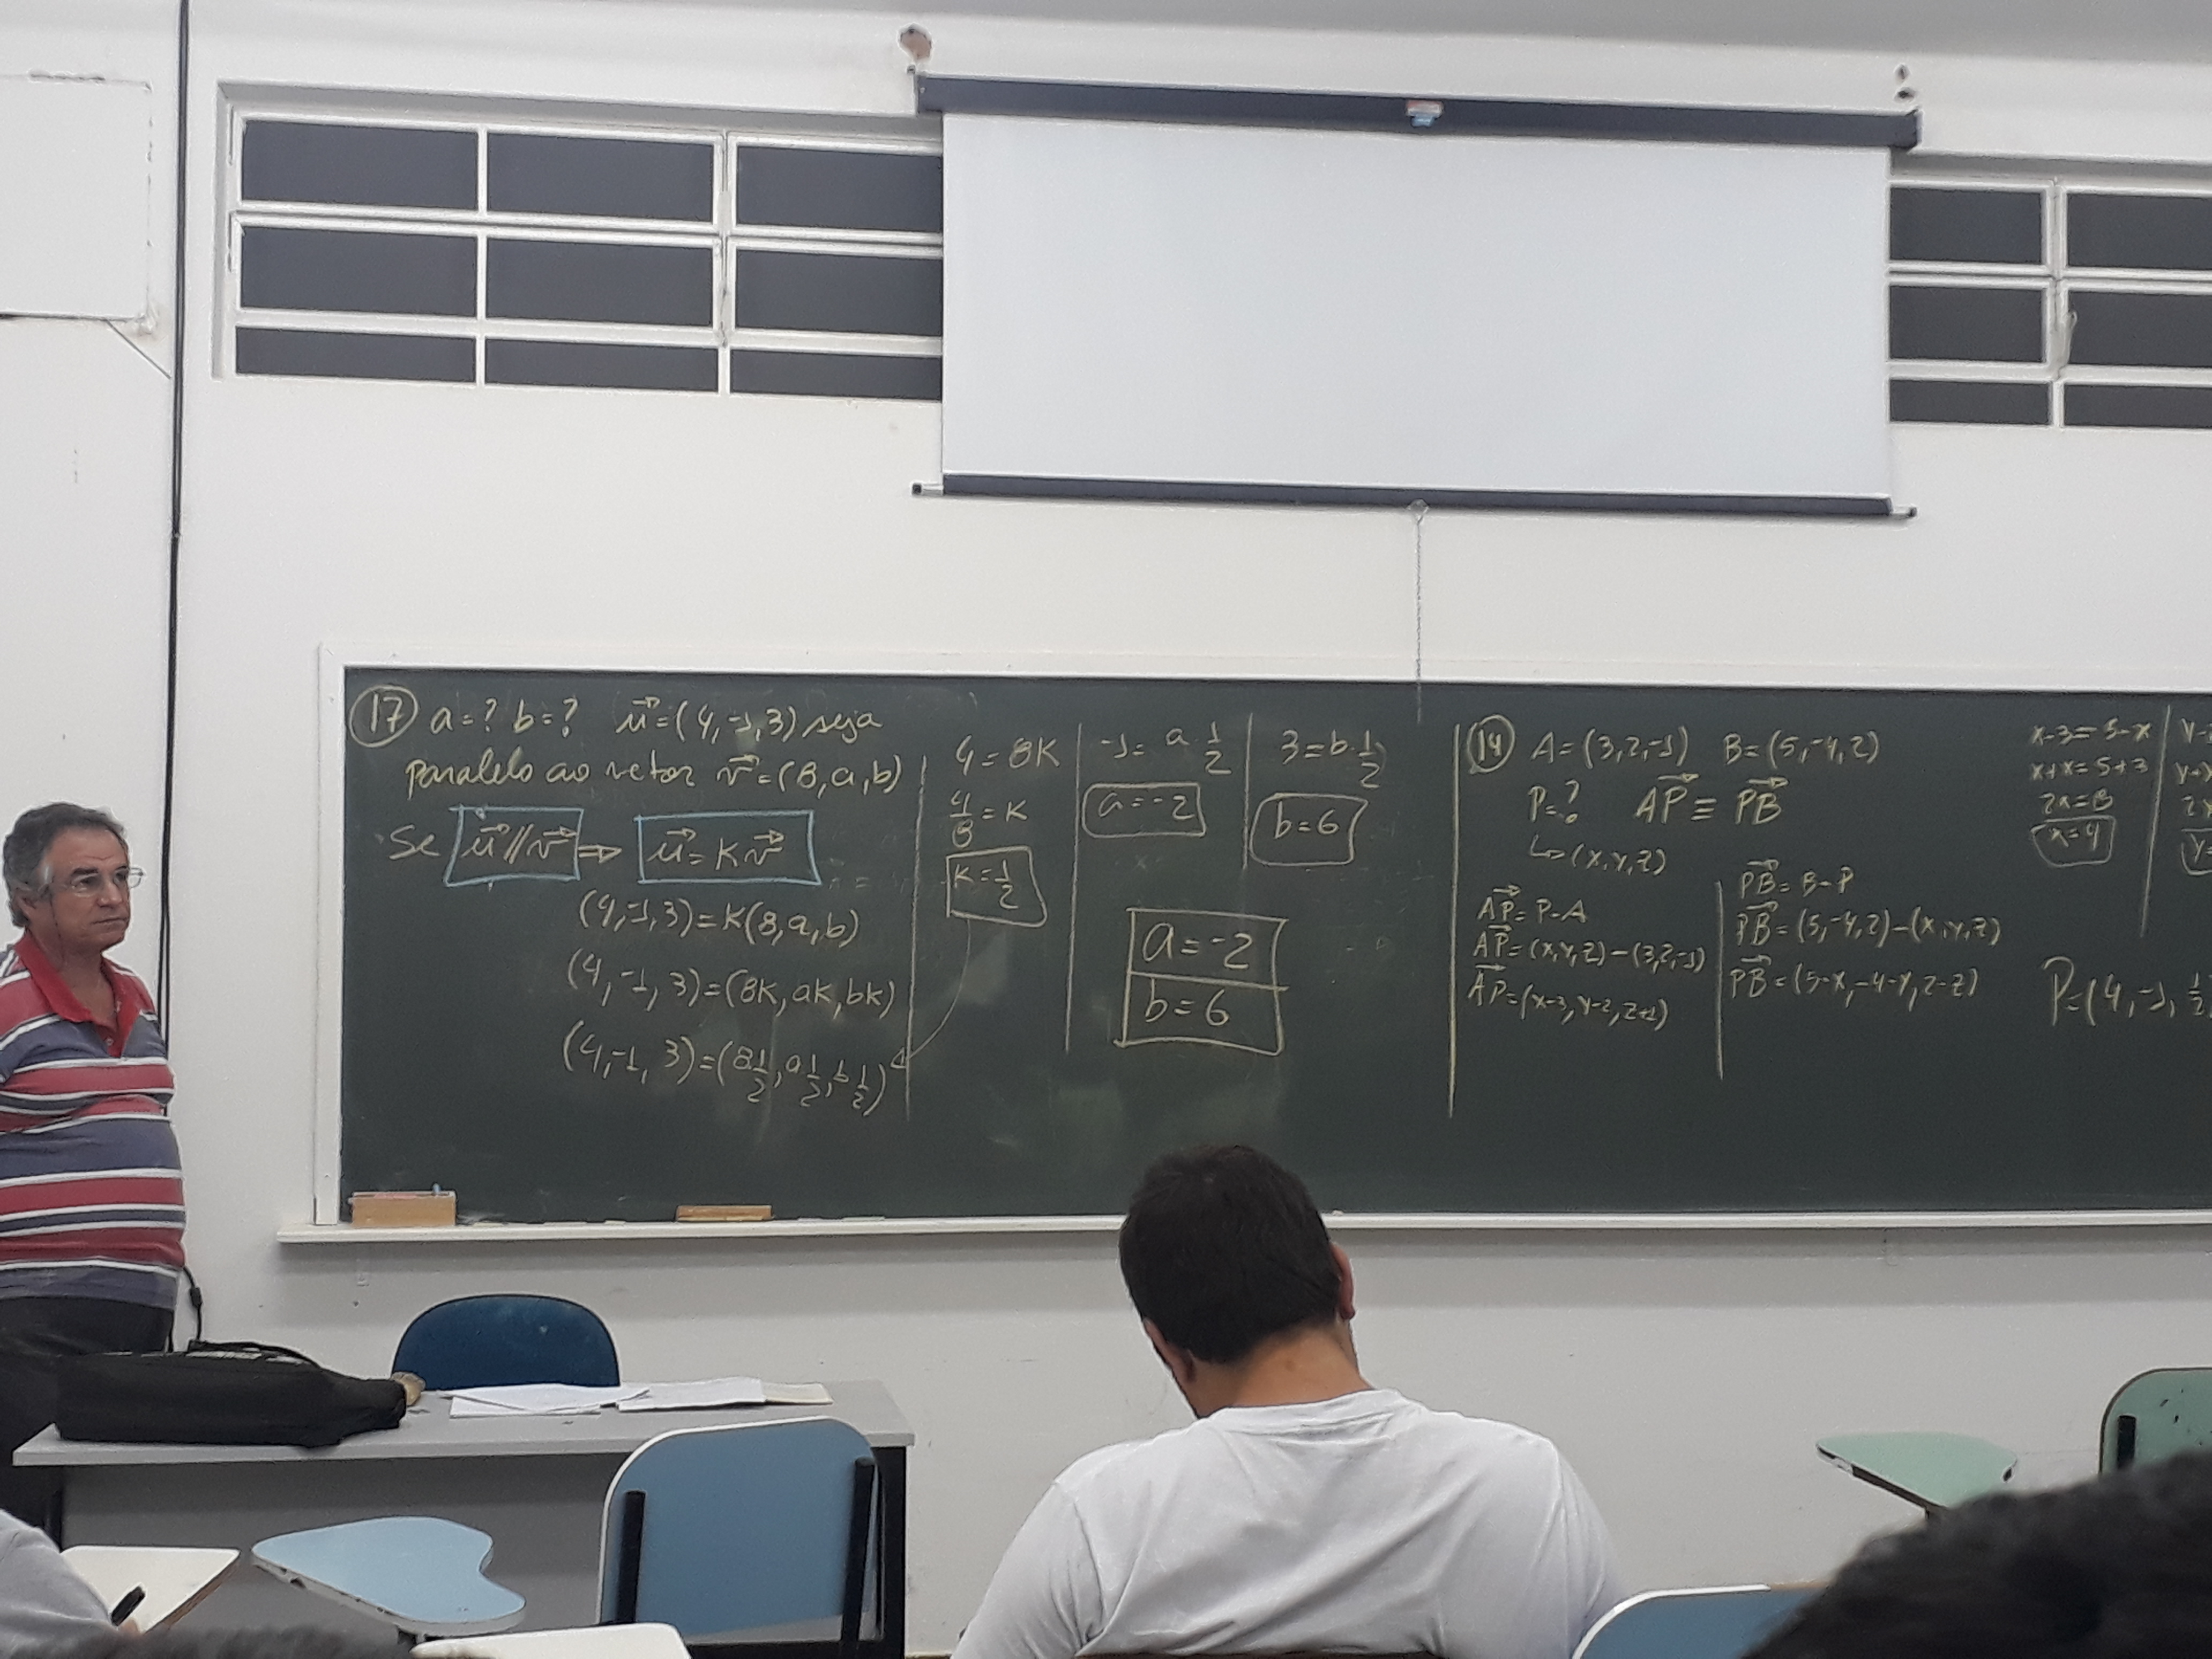 17 a=? b=? u⃗=(4,-1,3) seja
paralelo ao vetor v⃗=(8,a,b)
Se u⃗//v⃗ ⇒ u⃗=Kv⃗
(4,-1,3)=K(8,a,b)
(4,-1,3)=(8K,aK,bK)
(4,-1,3)=(8 1/2, a 1/2, b 1/2)
4=8K
4/8=K
K=1/2
-1=a·1/2
a=-2
3=b·1/2
b=6
a=-2
b=6
14 A=(3,2,-1) B=(5,-4,2)
P=? AP⃗≡PB⃗
↳(x,y,z)
AP⃗=P-A
AP⃗=(x,y,z)-(3,2,-1)
AP⃗=(x-3,y-2,z+1)
PB⃗=B-P
PB⃗=(5,-4,2)-(x,y,z)
PB⃗=(5-x,-4-y,2-z)
x-3=5-x
x+x=5+3
2x=8
x=4
P=(4,-1,1/2